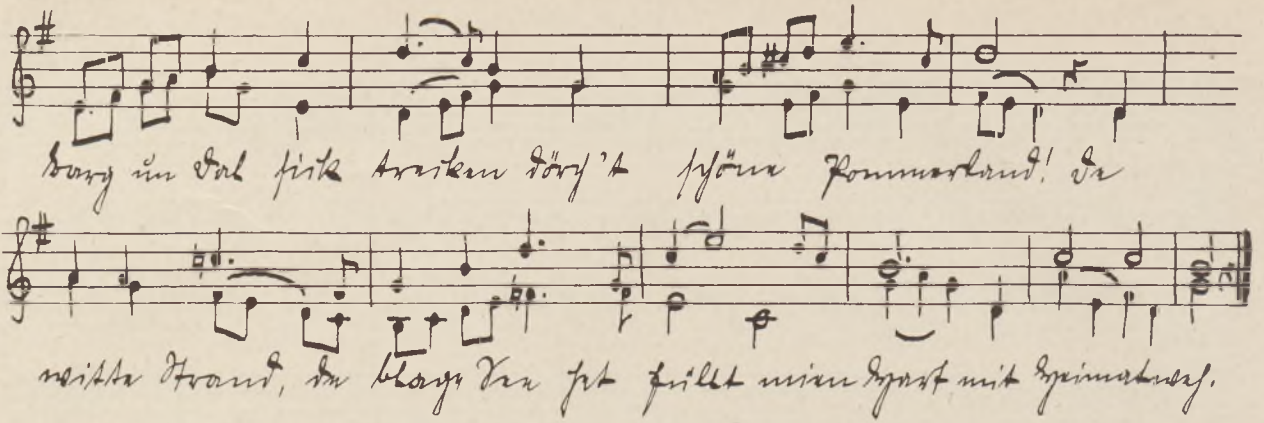 barg un dal sick trecken dörch't schöne Pommerland! De
witte Strand, de blage See het füllt mien Hart mit Heimatweh.